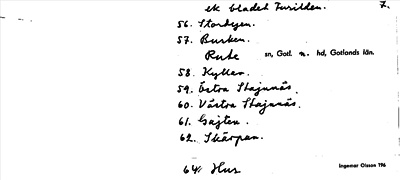 ek bladet Furilden. 7.
56. Storbyen.
57. Burken.
Rute sn, Gotl. n. hd, Gotlands län.
58. Kyller.
59. Östra Stajnnäs.
60. Västra Stajnnäs.
61. Gajten.
62. Skärpan.
64. Hus
Ingemar Olsson 196